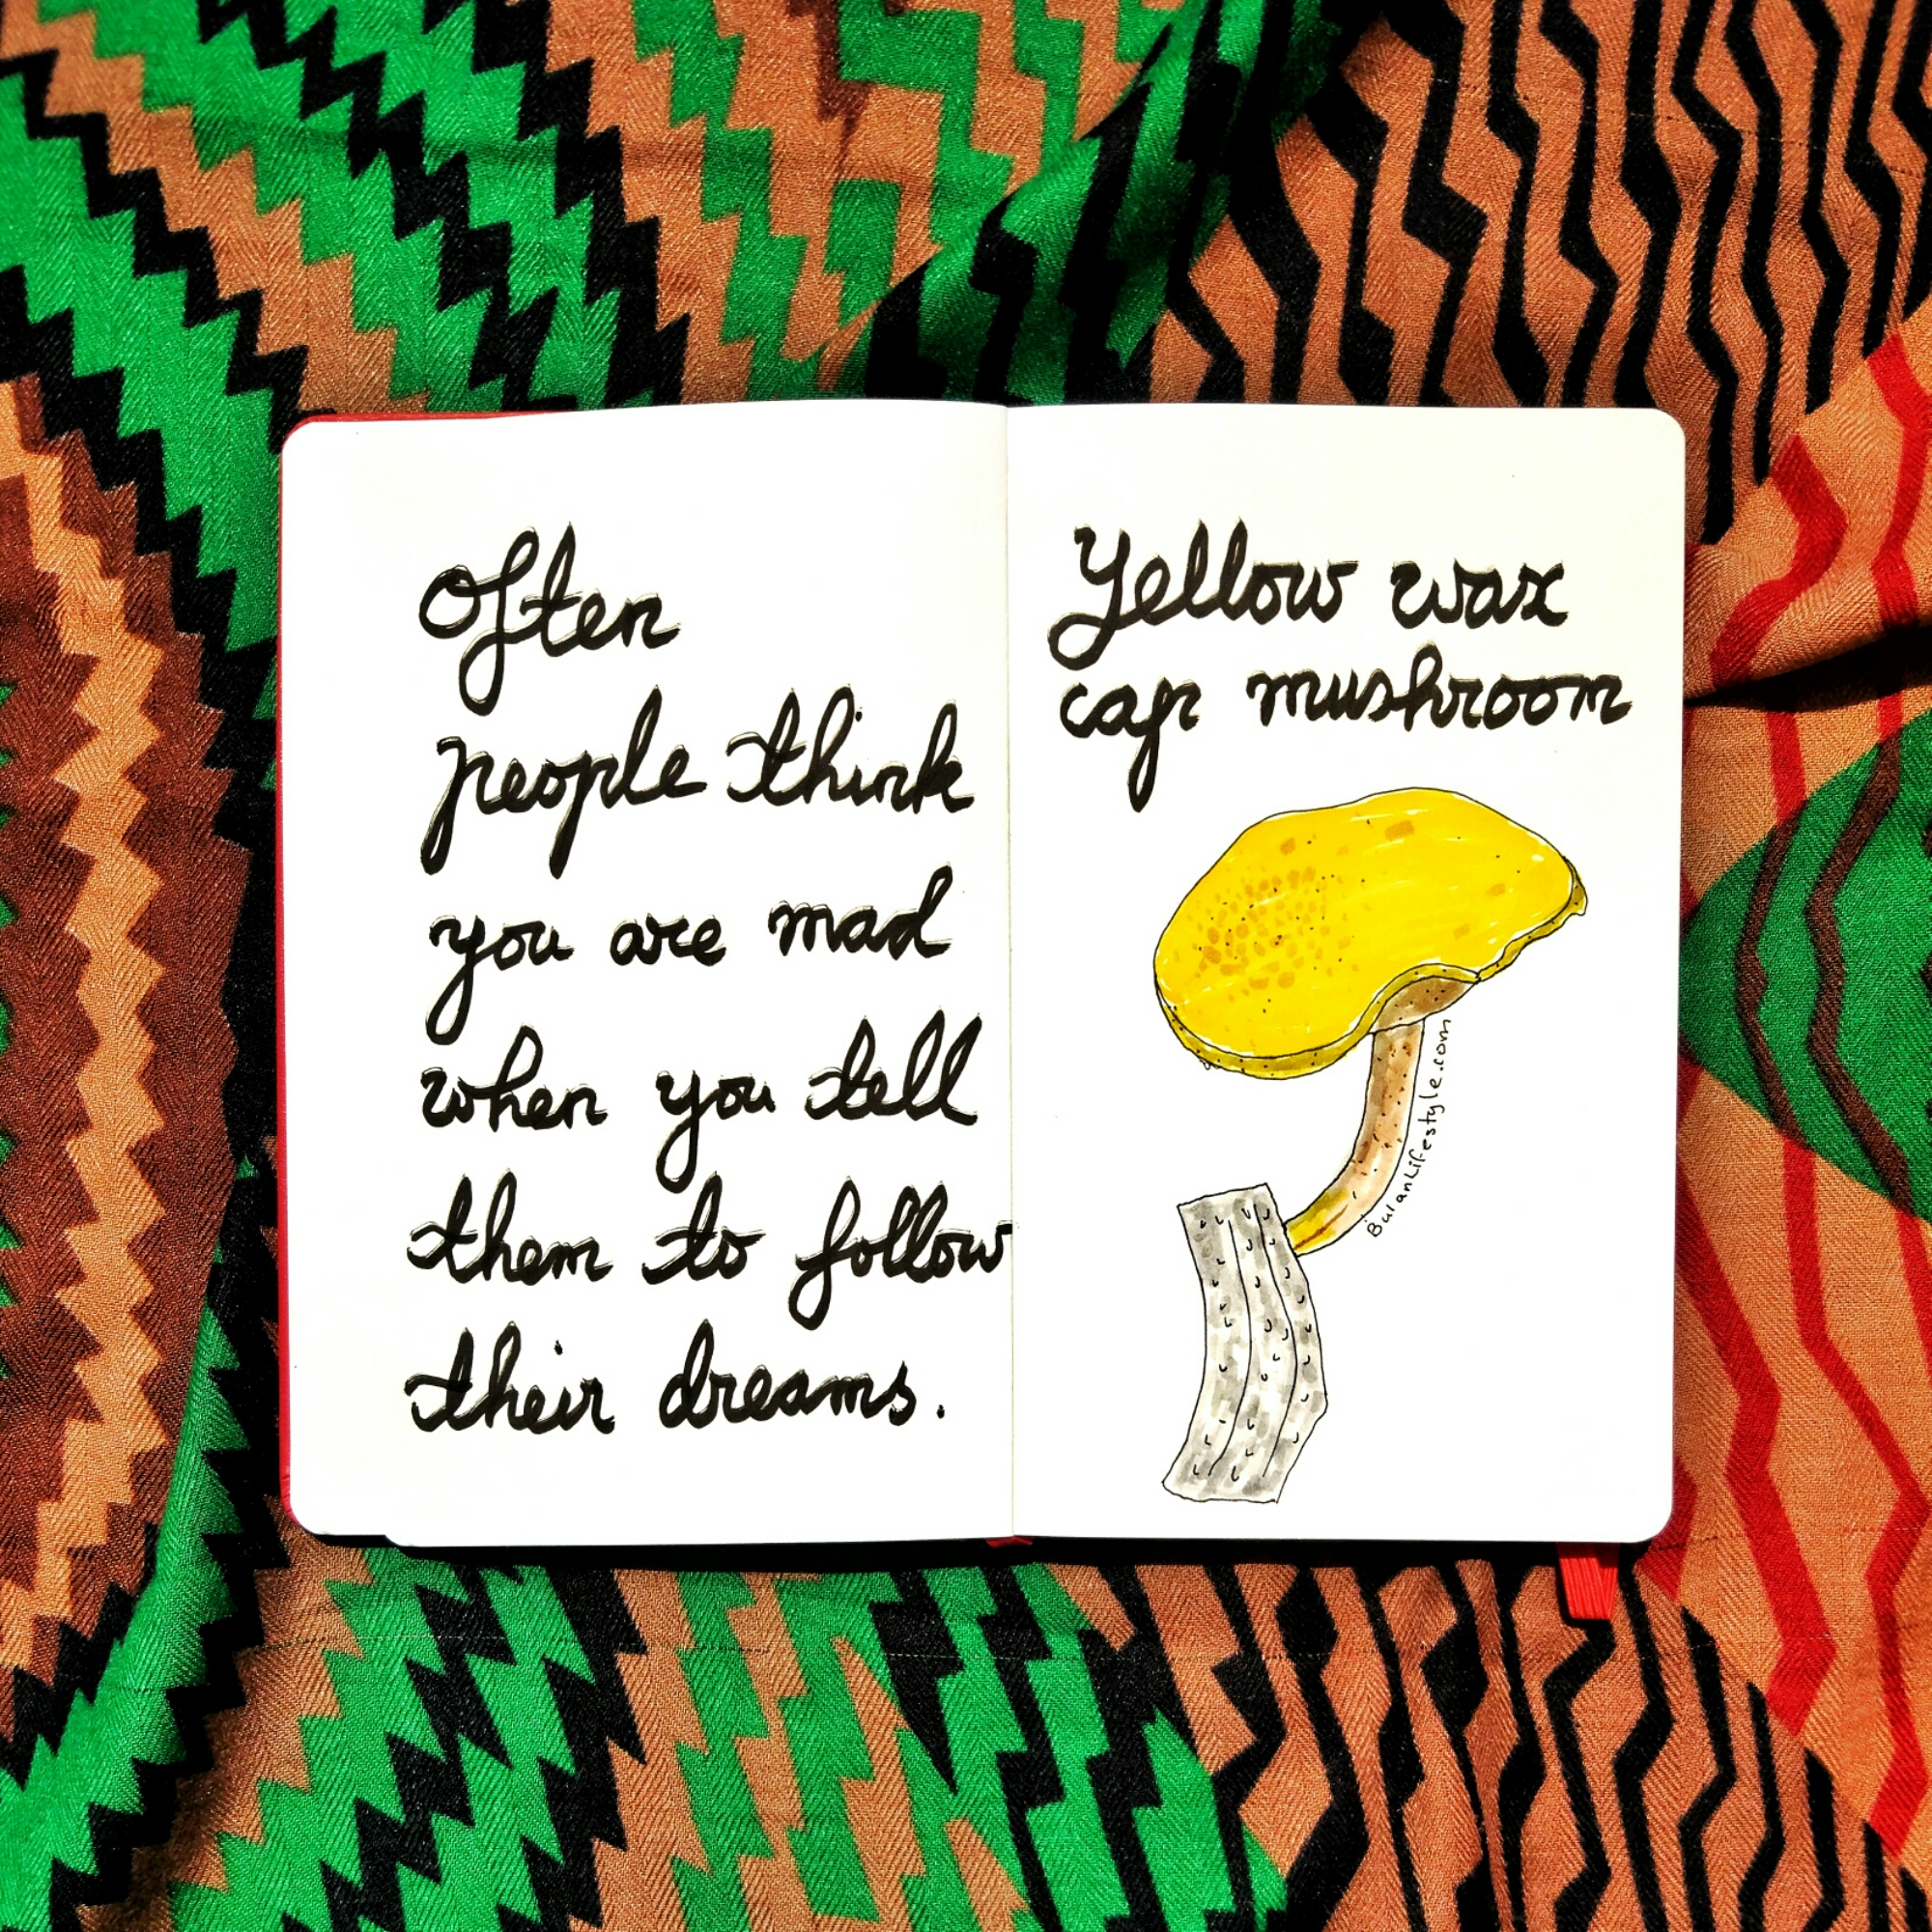 Often
people think
you are mad
when you tell
them to follow
their dreams.
Yellow wax
cap mushroom
BulanLifestyle.com